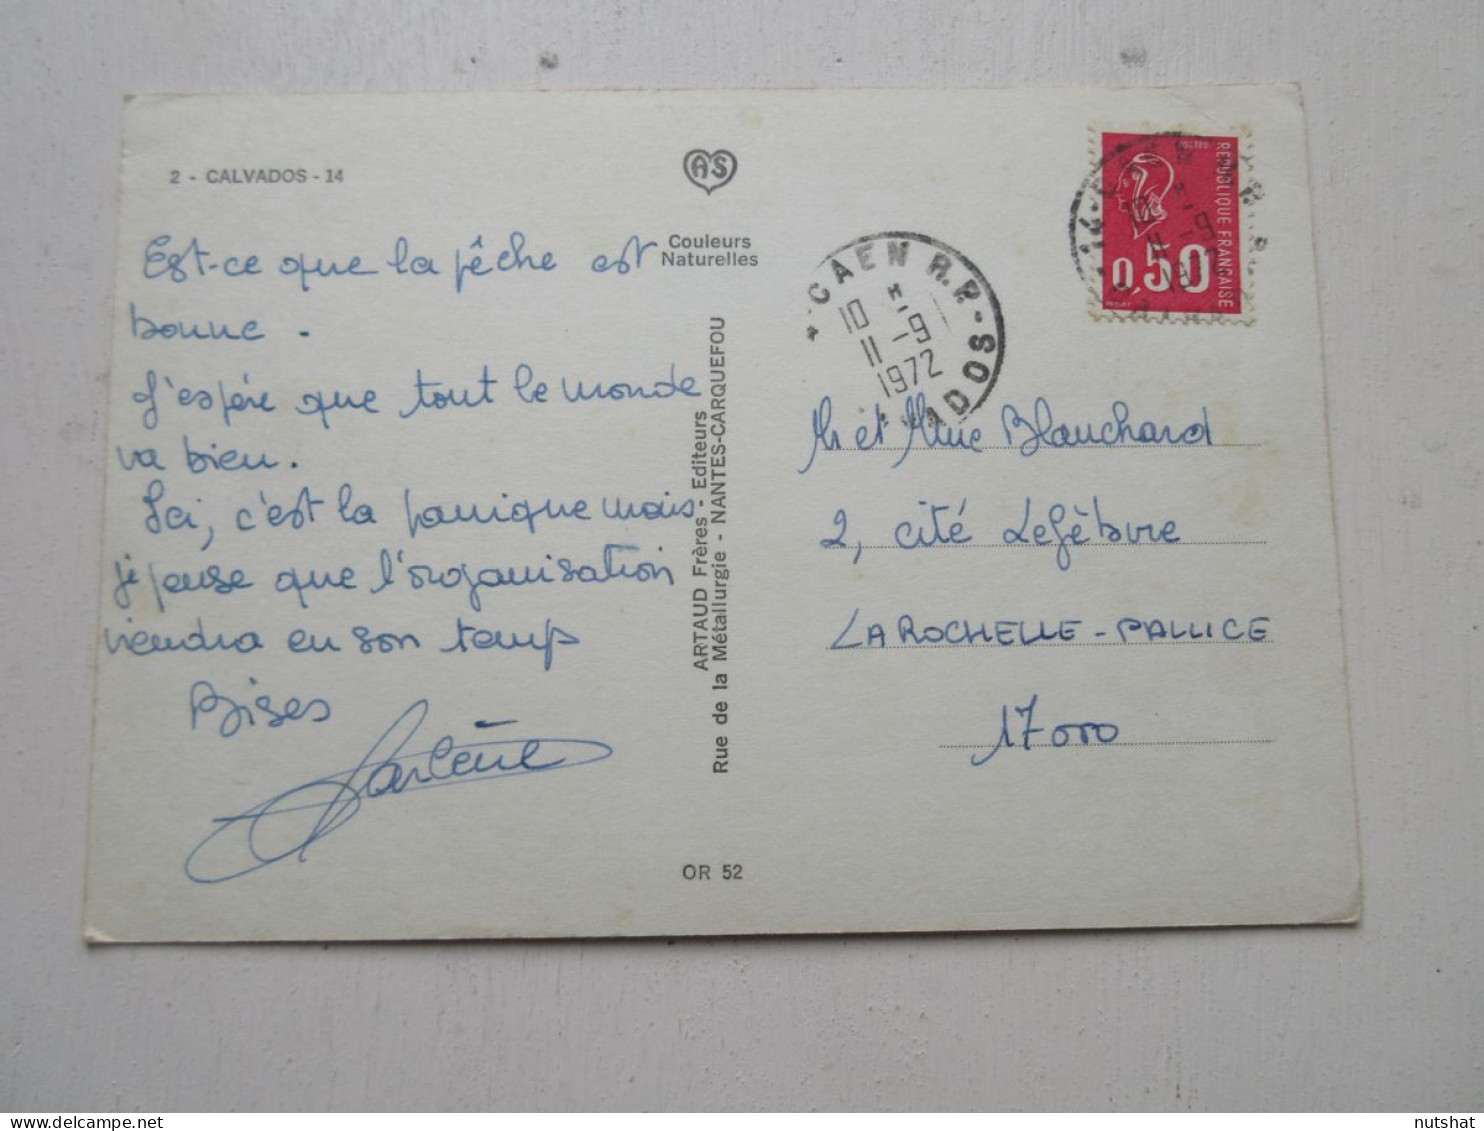 2 - CALVADOS - 14
AS
Couleurs
Naturelles
Est-ce que la pêche est
bonne.
J'espère que tout le monde
va bien.
Ici, c'est la panique mais
je pense que l'organisation
viendra en son temps
Bises
ARTAUD Frères - Editeurs
Rue de la Métallurgie - NANTES-CARQUEFOU
OR 52
POSTES
REPUBLIQUE FRANÇAISE
0,50
CAEN R.P. -
10 H
11 - 9
1972
Mr et Mme Blanchard
2, cité Lefèbvre
LA ROCHELLE - PALLICE
17000
nutshat